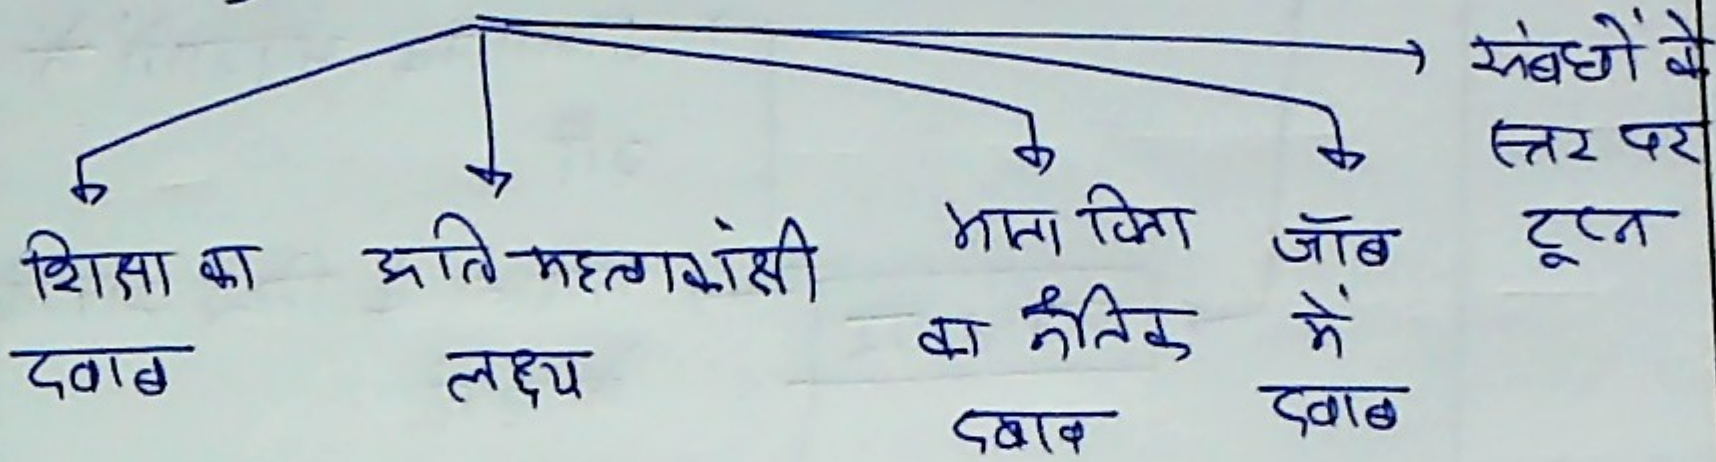 शिक्षा का
दवाब
अति महत्वाकांक्षी
लक्ष्य
माता पिता
का नैतिक
दबाव
जॉब
में
दवाब
संबधों के
स्तर पर
टूटन